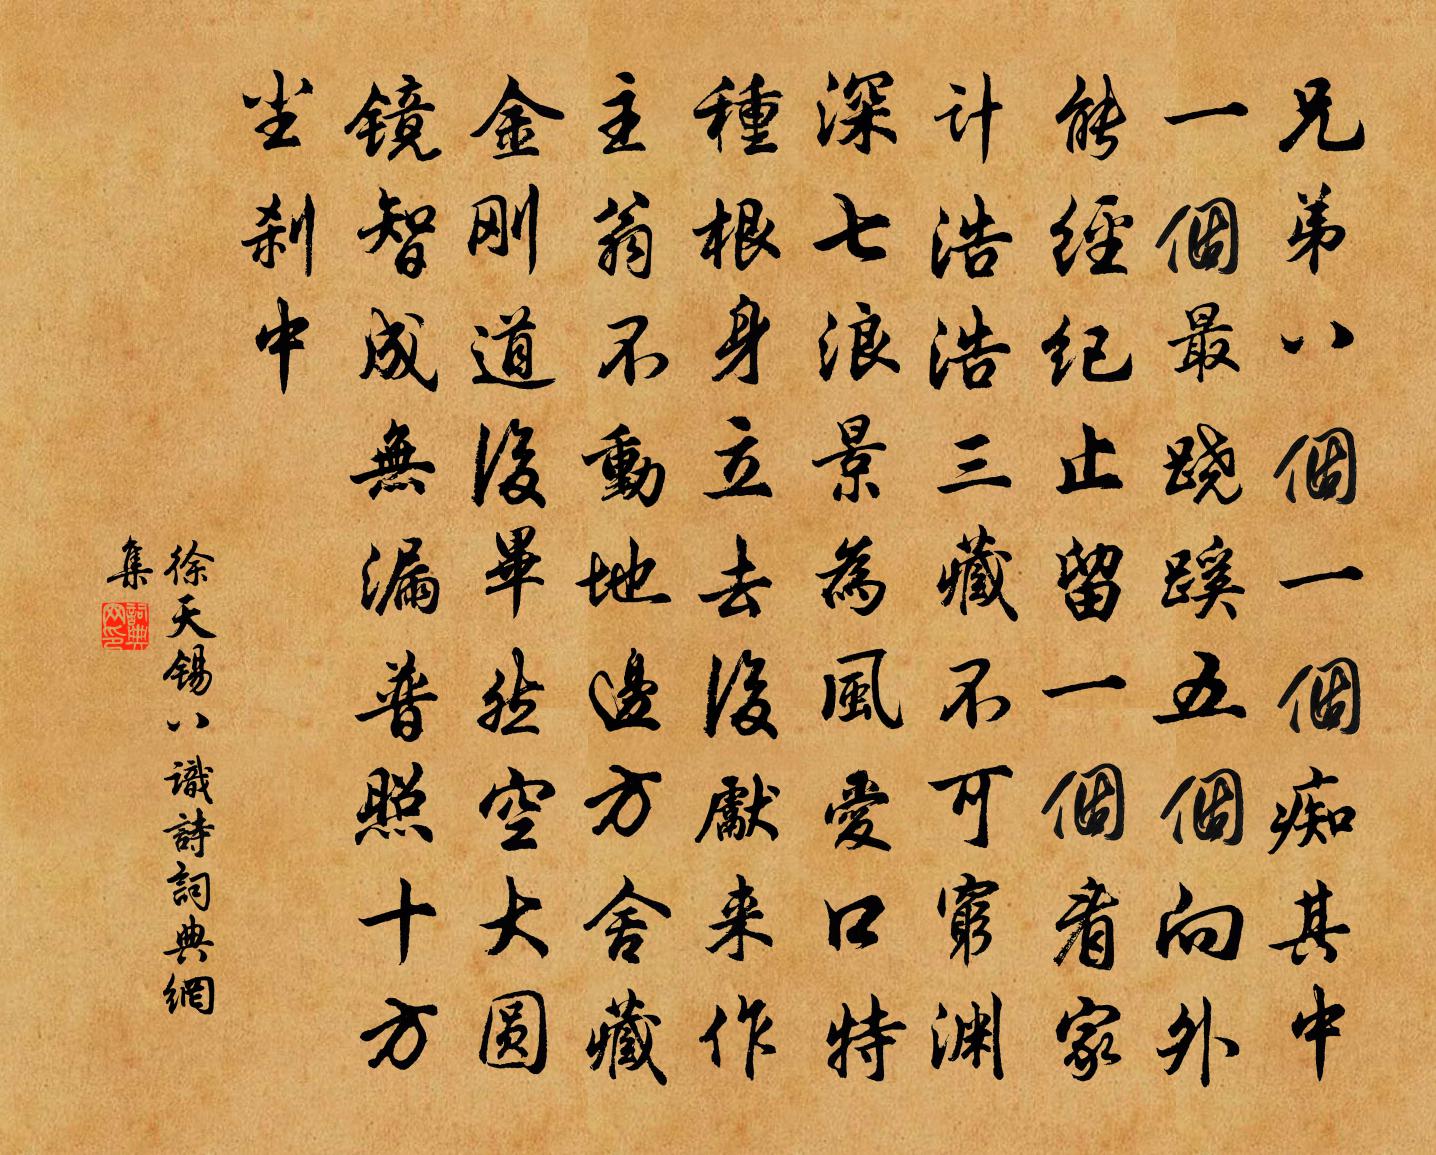 兄弟八個一個痴其中
一個最跷蹊五個向外
能經纪止留一個看家
计浩浩三藏不可窮渊
深七浪景為風爱口特
種根身立去後獻来作
主翁不動地邊方舍藏
金刚道後畢然空大圆
镜智成無漏普照十方
尘刹中
徐天锡八識詩詞典網
集
詞典
网印